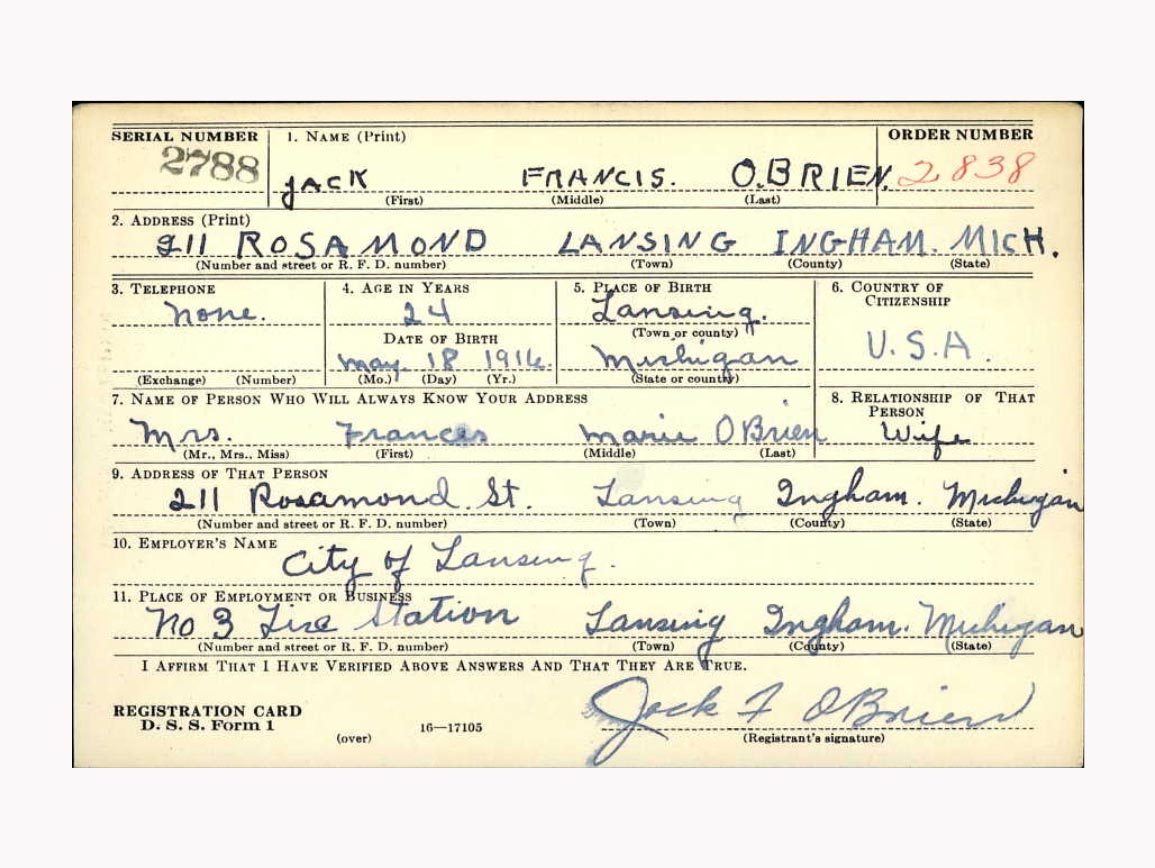 SERIAL NUMBER 1. NAME (Print) ORDER NUMBER
2788 JACK FRANCIS. O.BRIEN. 2838
(First) (Middle) (Last)
2. ADDRESS (Print)
211 ROSAMOND LANSING INGHAM. MICH.
(Number and street or R. F. D. number) (Town) (County) (State)
3. TELEPHONE 4. AGE IN YEARS 5. PLACE OF BIRTH 6. COUNTRY OF CITIZENSHIP
None. 24 Lansing.
(Town or county)
DATE OF BIRTH U.S.A.
May. 18 1916. Michigan
(Exchange) (Number) (Mo.) (Day) (Yr.) (State or country)
7. NAME OF PERSON WHO WILL ALWAYS KNOW YOUR ADDRESS 8. RELATIONSHIP OF THAT PERSON
Mrs. Frances Marie OBrien Wife
(Mr., Mrs., Miss) (First) (Middle) (Last)
9. ADDRESS OF THAT PERSON
211 Rosamond. St. Lansing Ingham. Michigan
(Number and street or R. F. D. number) (Town) (County) (State)
10. EMPLOYER'S NAME
City of Lansing.
11. PLACE OF EMPLOYMENT OR BUSINESS
No 3 Fire Station Lansing Ingham. Michigan
(Number and street or R. F. D. number) (Town) (County) (State)
I AFFIRM THAT I HAVE VERIFIED ABOVE ANSWERS AND THAT THEY ARE TRUE.
REGISTRATION CARD Jack F OBrien
D. S. S. Form 1 16—17105
(over) (Registrant's signature)